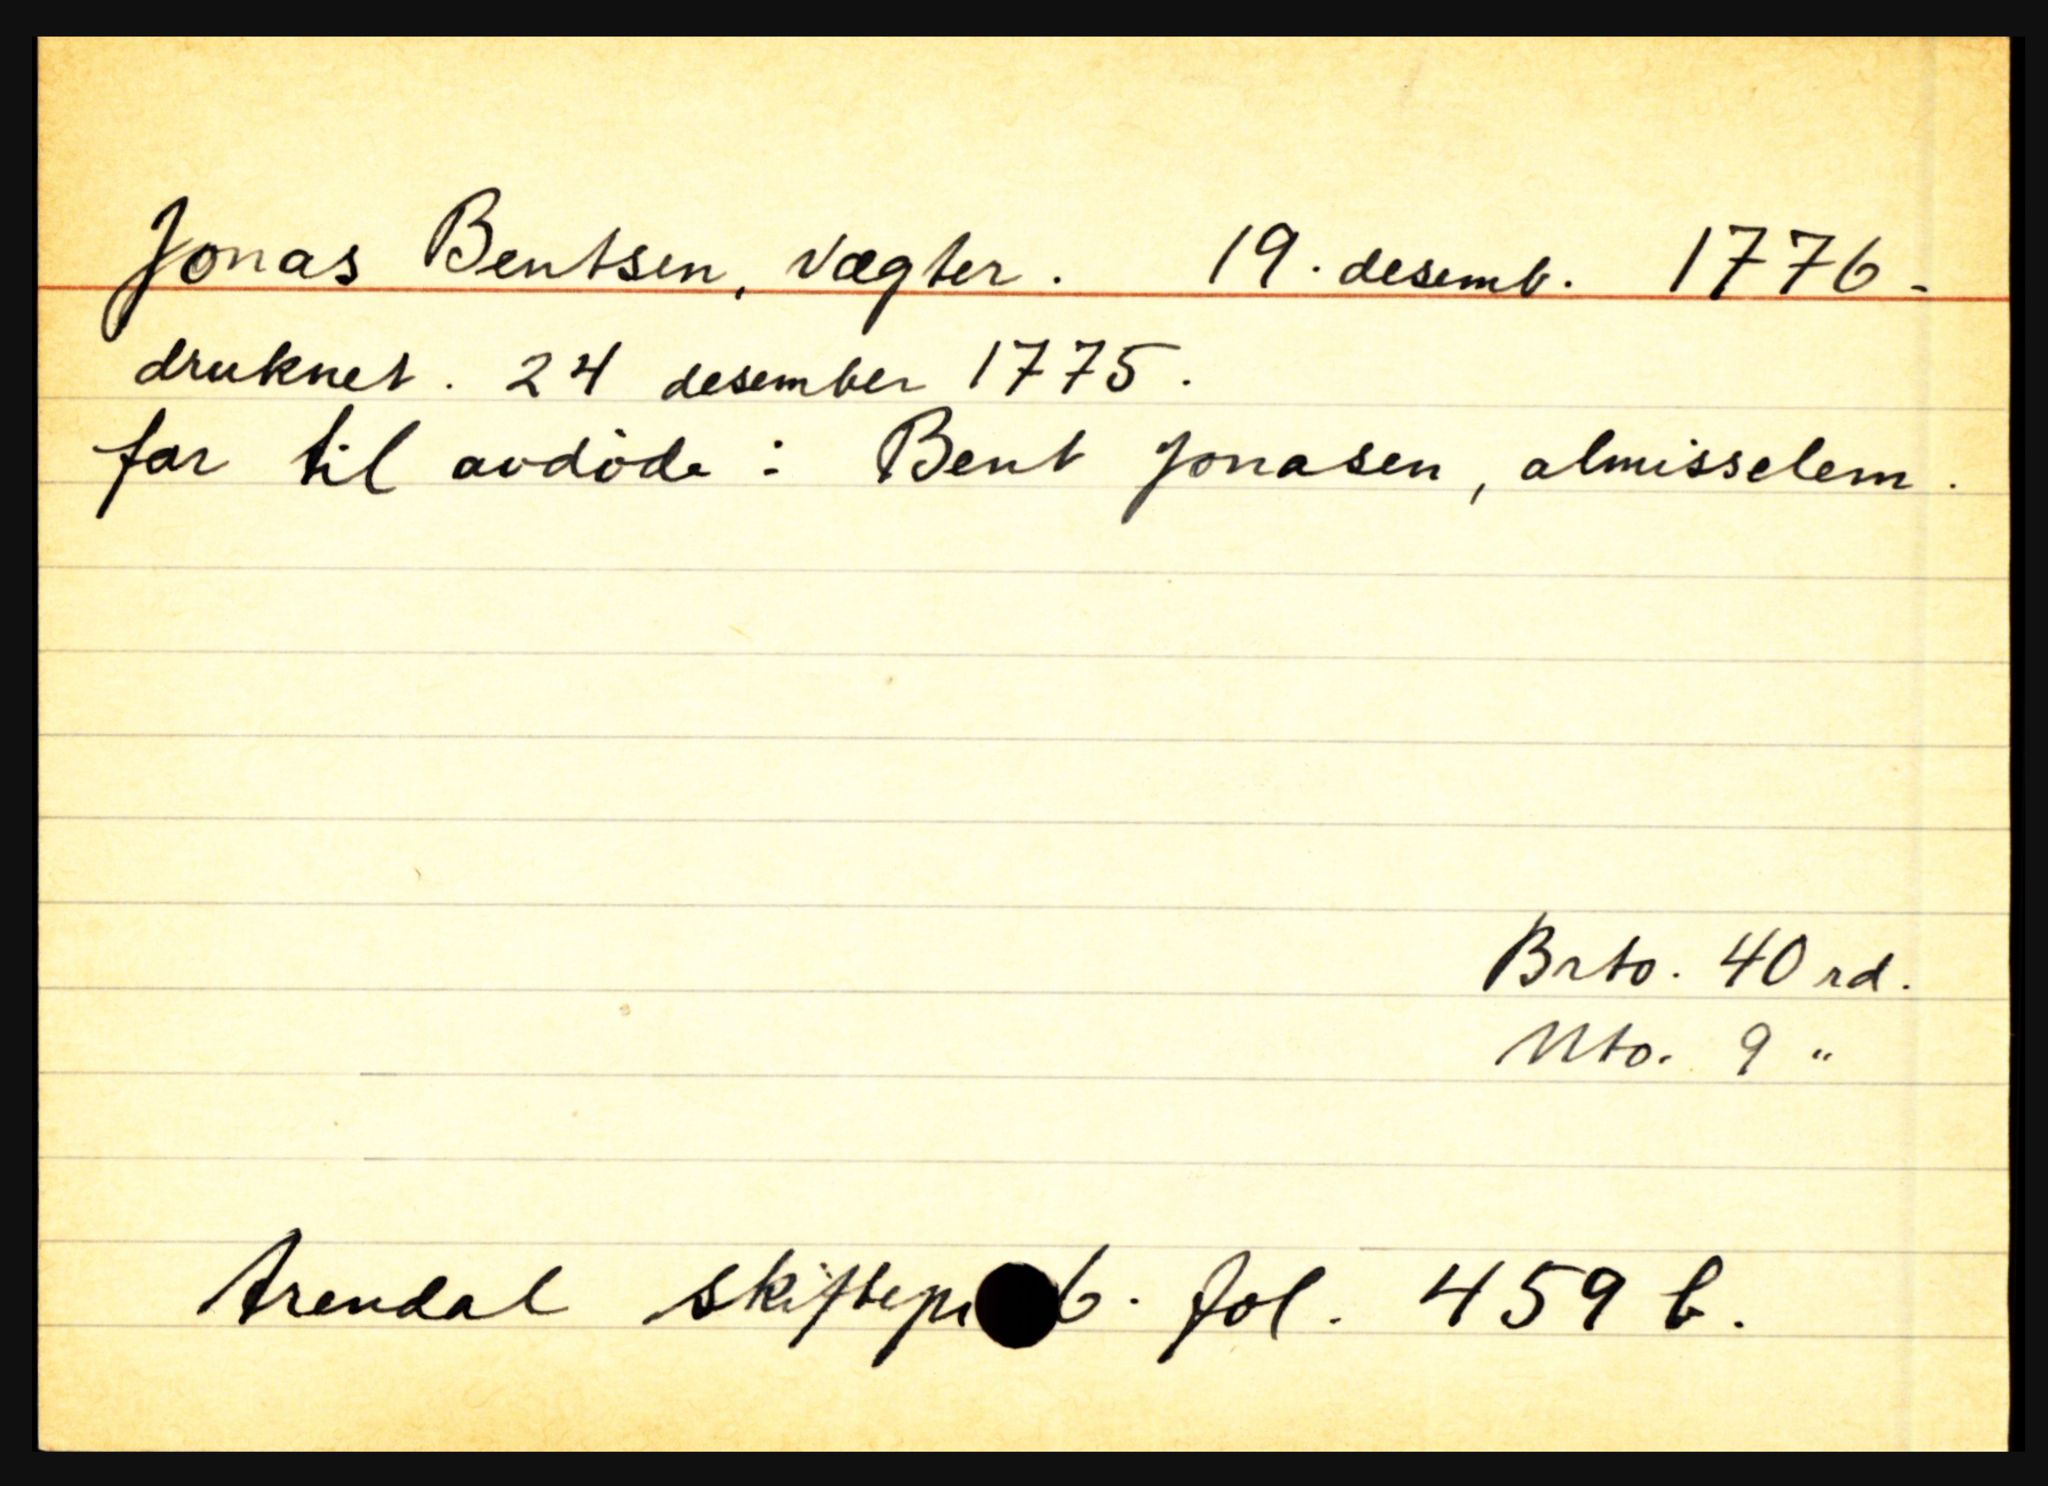 Jonas Bentsen, vægter. 19. desemb. 1776-
druknet. 24 desember 1775.
far til avdöde: Bent Jonasen, almisselem.
Brto. 40 rd.
Nto. 9 "
Arendal skiftepr 6. fol. 459 b.